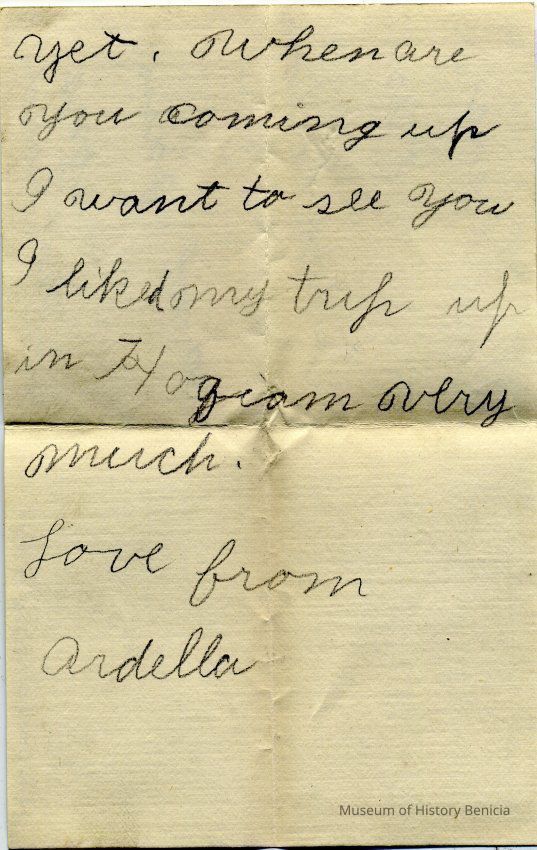 yet. When are
you coming up
I want to see you
I liked my trip up
in Hoogiam very
much.
Love from
Ardella
Museum of History Benicia